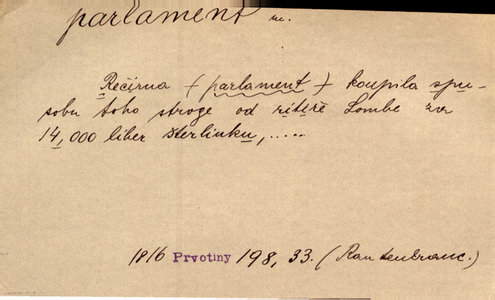 parlament m.
Rečírna (parlament) koupila spu-
sobu toho stroge od ritíře Lombe za
14,000 liber šterlinku,.....
1816 Prvotiny 198, 33. (Rautenkranc.)